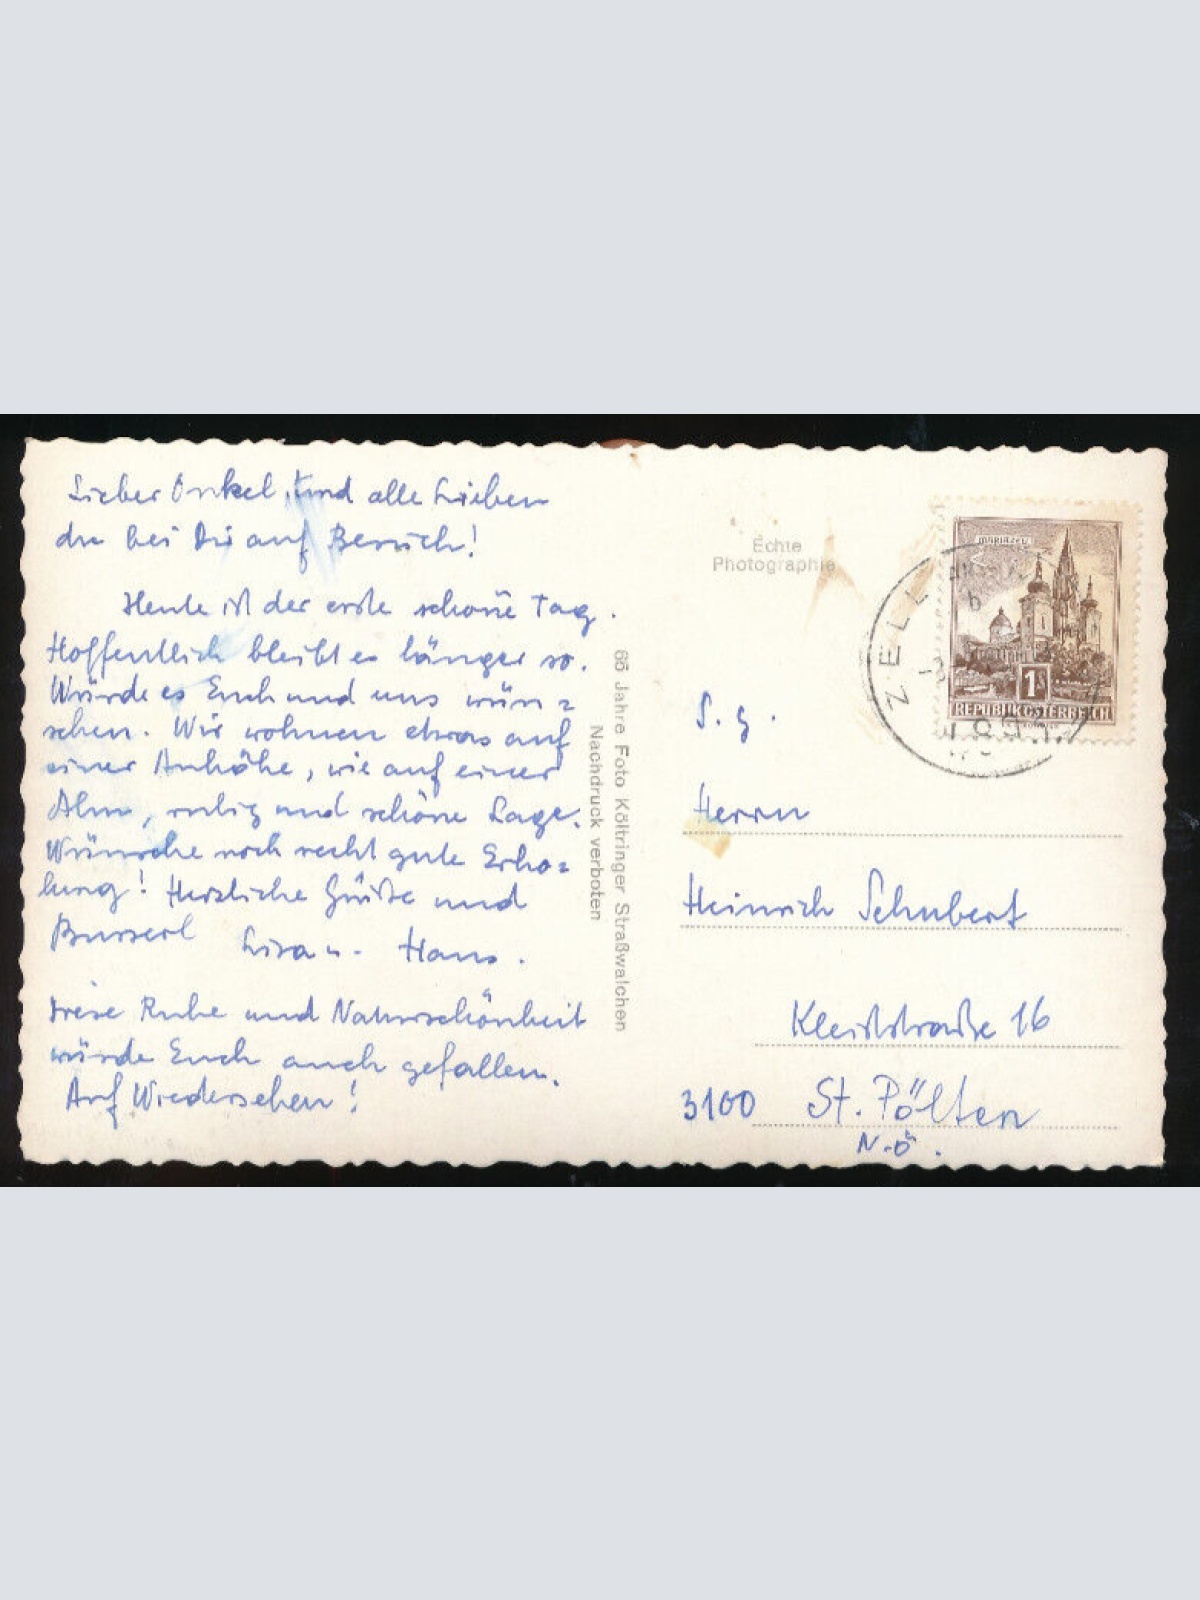 Lieber Onkel und alle Lieben
die bei Dir auf Besuch!
Heute ist der erste schöne Tag.
Hoffentlich bleibt es länger so.
Würde es Euch und uns wün=
schen. Wir wohnen etwas auf
einer Anhöhe, wie auf einer
Alm, ruhig und schöne Lage.
Wünsche noch recht gute Erho=
lung! Herzliche Grüße und
Busserl Lisa u. Hans.
Diese Ruhe und Naturschönheit
würde Euch auch gefallen.
Auf Wiedersehen!
65 Jahre Foto Költringer Straßwalchen
Nachdruck verboten
Echte
Photographie
MARIAZELL
1S
REPUBLIK ÖSTERREICH
ZELL
b
S. g.
Herrn
Heinrich Schubert
Kleiststraße 16
3100 St. Pölten
N.Ö.